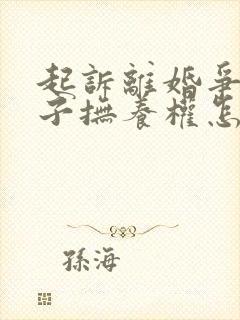 起訴離婚爭
子撫養權怎
孫海